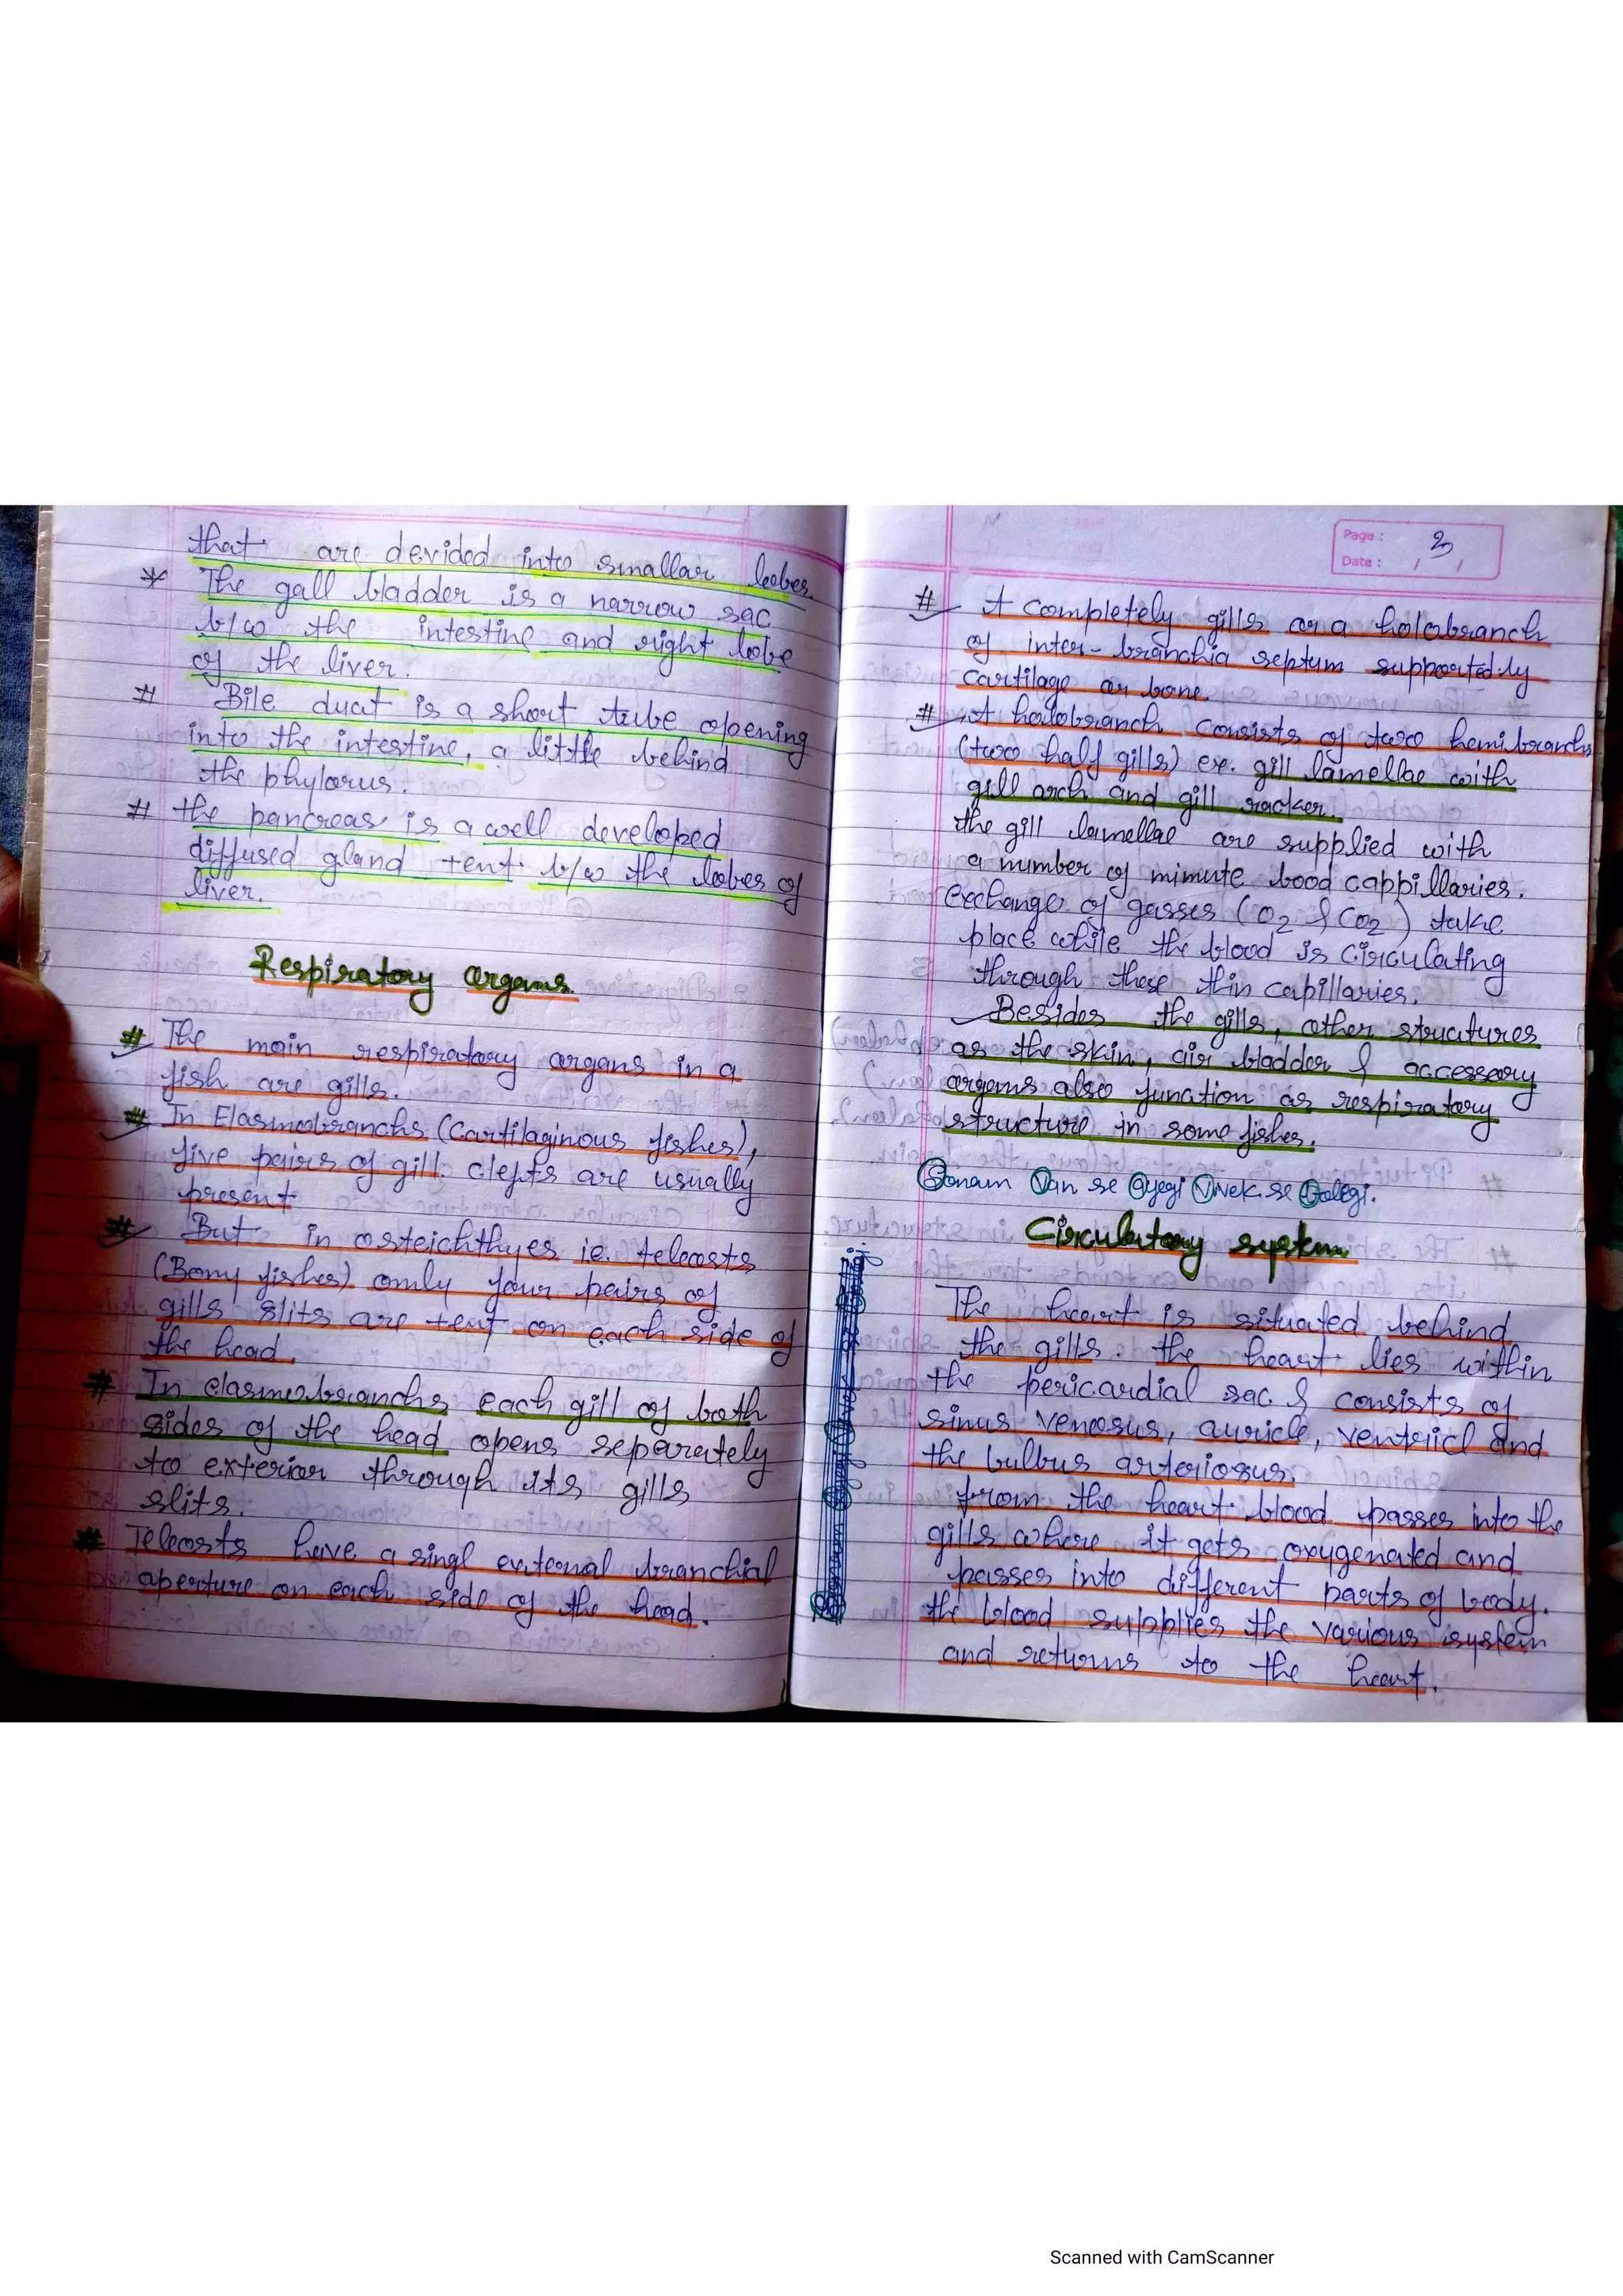 that are devided into smallar loobes.
* The gall bladder is a narrow sac
b/w the intestine and right lobe
of the liver.
# Bile duct is a short tube opening
into the intestine, a little behind
the phylorus.
# the pancreas is a well developed
diffused gland +ent b/w the loobes of
liver.
Respiratory organs.
# The main respiratory organs in a
fish are gills.
# In Elasmobranchs (Cartilaginous fishes),
five pairs of gill clefts are usually
present
# But in osteichthyes i.e. teleosts
(Bony fishes) only four pairs of
gills slits are +ent on each side of
the head.
# In elasmobranchs each gill of both
sides of the head opens separetely
to exterior through its gills
slits.
# Teleosts have a singl external branchial
aperture on each side of the head.
Page : 3
Date : / /
# A completely gills or a holobranch
of inter-branchia septum supported by
cartilage or bone.
# A holobranch consists of two hemibranchs
(two half gills) ex. gill lamellae with
gill arch and gill racker.
the gill lamellae are supplied with
a number of mimute bood cappillaries.
exchange of gasses (O2 & CO2) take
place while the blood is circulating
through these thin capillaries.
Besides the gills, other structures
as the skin, air bladder & accessory
organs also function as respiratory
structure in some fishes.
Sonam Van se Ayegi Vivek se
Circulatory system
The heart is situated behind
the gills. the heart lies within
the pericardial sac. & consists of
sinus venosus, auricle, ventricl and
the bulbus arteriosus.
from the heart blood passes into the
gills where it gets oxygenated and
passes into different parts of body.
the blood supplies the various system
and returns to the heart.
Scanned with CamScanner